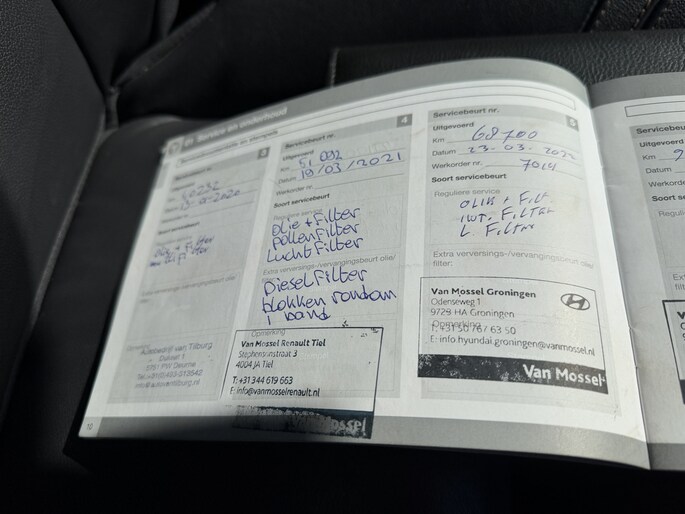 Service en onderhoud
3
Km
Datum
Olie + Filter
Autobedrijf van Tilburg
5751 PW Deurne
10
Servicebeurt nr. 4
Uitgevoerd
Km 51 092
Datum 19/03/2021
Werkorder nr.
Soort servicebeurt
Reguliere service
Olie + Filter
Pollen Filter
Lucht Filter
Extra verversings-/vervangingsbeurt olie/
Diesel Filter
blokken rondom
1 band
Opmerking
Van Mossel Renault Tiel
Stephensonstraat 3
4004 JA Tiel
T: +31 344 619 663
E: info@vanmosselrenault.nl
Van Mossel
Servicebeurt nr. 5
Uitgevoerd
Km 68700
Datum 23-03-2022
Werkorder nr.
Soort servicebeurt
Reguliere service
Olie + Filt.
Int. Filter
L Filter
Extra verversings-/vervangingsbeurt olie/
filter:
Van Mossel Groningen
Odenseweg 1
9729 HA Groningen
Opmerking
T: +31 50 767 63 50
E: info.hyundai.groningen@vanmossel.nl
Van Mossel
Servicebeurt
Uitgevoerd
Km
Datum
Werkorder
Soort se
Reguliere
Extra
filter: